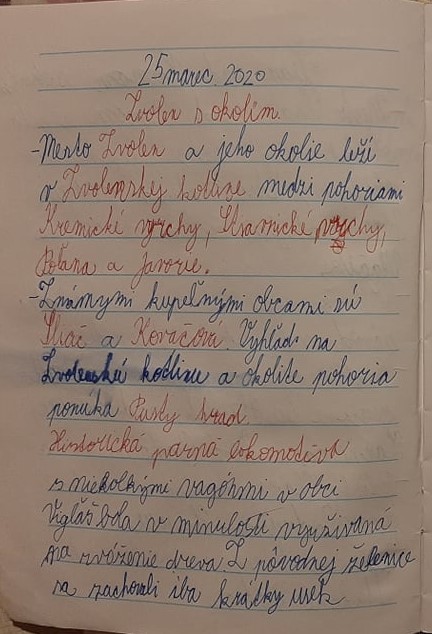 25 marec. 2020
Zvolen s okolím.
-Mesto Zvolen a jeho okolie leží
v Zvolenskej kotline medzi pohoriami
Kremické vrchy, Štiavnické vrchy,
Poľana a Javorie.
-Známymi kupeľnými obcami sú
Sliač a Kováčová. Vyhľad na
Zvolenskú kotlinu a okolite pohoria
ponúka Pustý hrad
Historická parná lokomotíva
s niekolkými vagónmi v obci
Vígľaš bola v minulosti využívaná
na zvážanie dreva Z pôvodnej železnice
sa zachovali iba krátky úsek